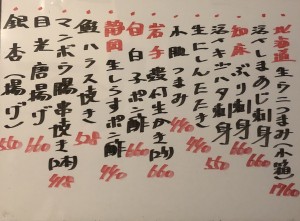 北海道 生ウニつまみ(小箱) 1760
活〆しまあじ刺身 660
加床 ぶり刺身 660
活〆キハタ刺身 560
生にしんたたき 440
水ダコつまみ 440
岩手 殻付生かき(2ヶ) 660
白子ポン酢 660
静岡 生しらすポン酢 440
鮭ハラス焼き 528
マンボウ腸串焼き(2本) 418
目光唐揚げ 660
銀杏(揚げ) 550